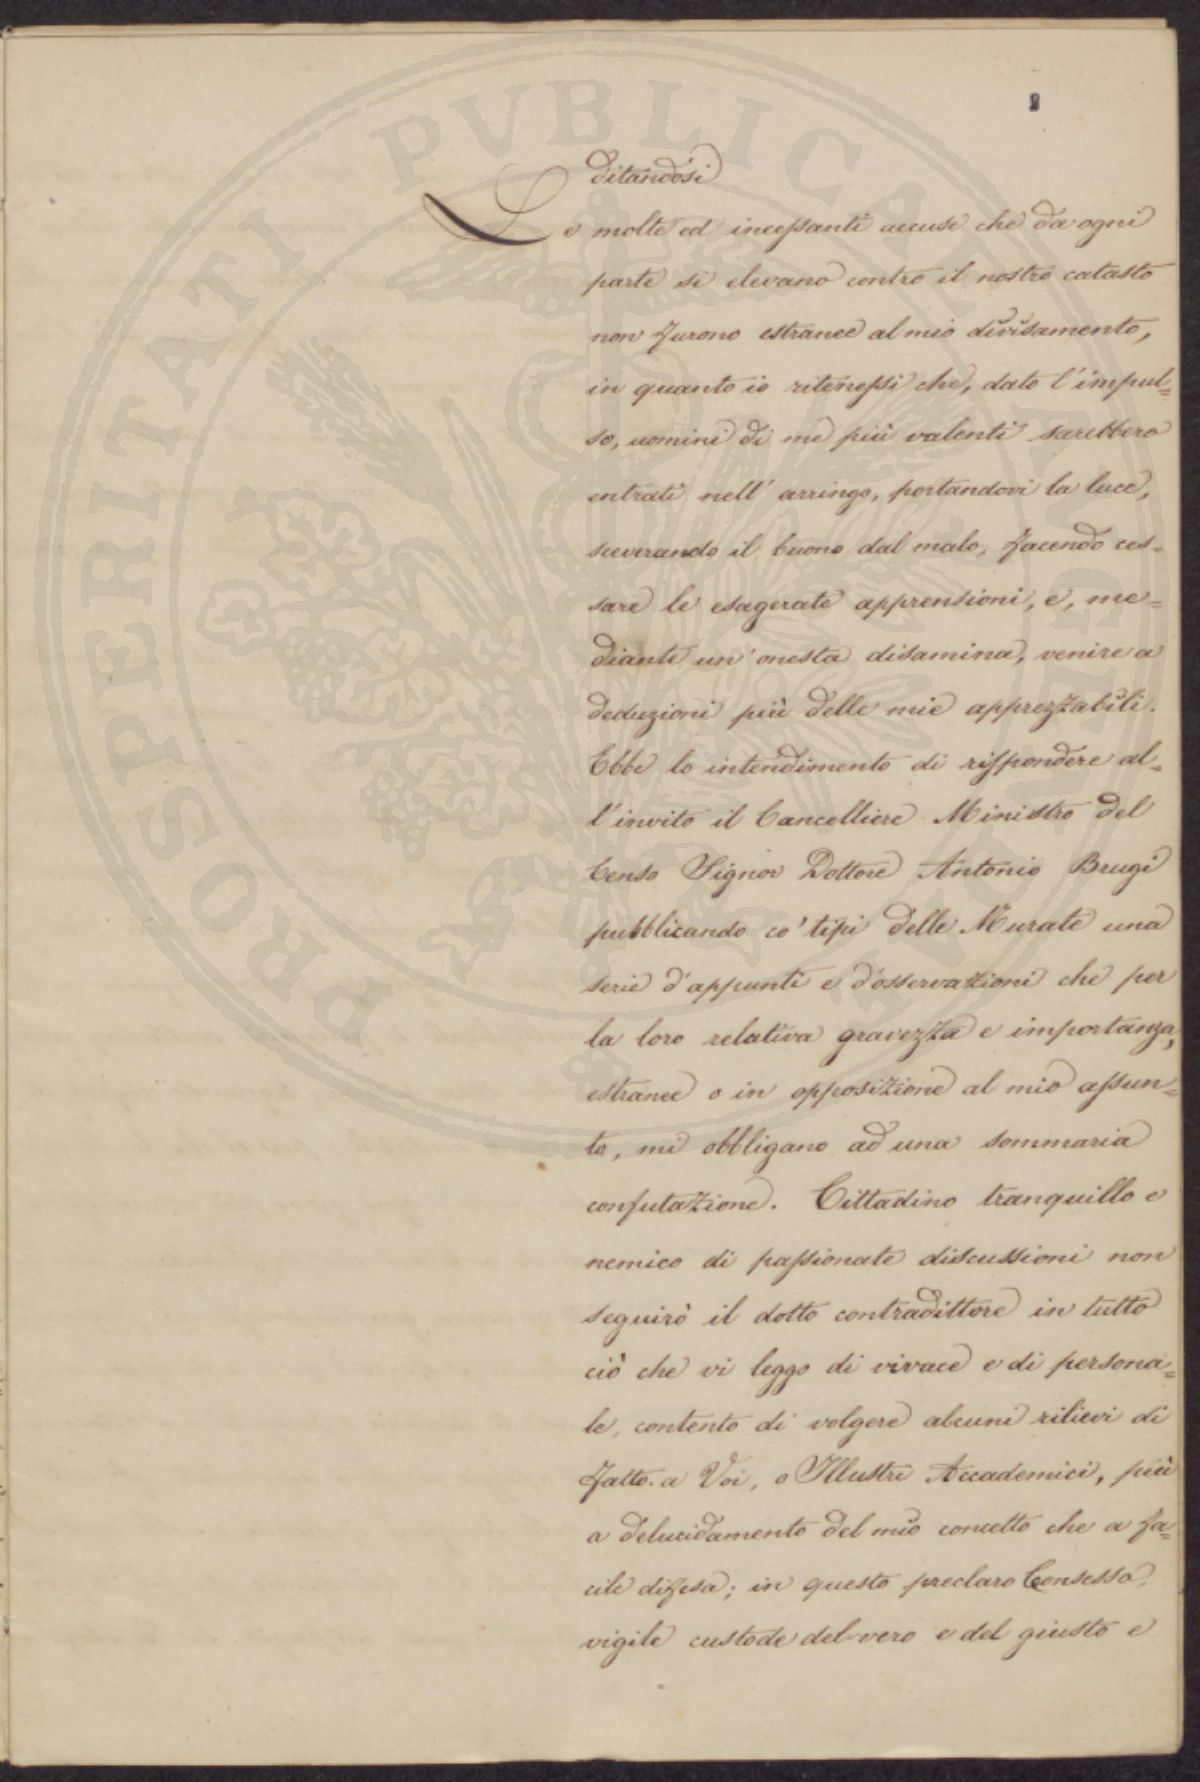 2
ditandosi
Le molte ed incessanti accuse che da ogni
parte si elevano contro il nostro catasto
non furono estranee al mio divisamento,
in quanto io ritenessi che, dato l'impul=
so, uomini di me più valenti sarebbero
entrati nell'arringo, portandovi la luce,
sceverando il buono dal malo, facendo ces=
sare le esagerate apprensioni, e, me=
diante un'onesta disamina, venire a
deduzioni più delle mie apprezzabili.
Ebbe lo intendimento di rispondere al=
l'invito il Cancelliere Ministro del
Censo Signor Dottore Antonio Brugi
pubblicando co' tipi delle Murate una
serie d'appunti e d'osservazioni che per
la loro relativa gravezza e importanza,
estranee o in opposizione al mio assun=
to, mi obbligano ad una sommaria
confutazione. Cittadino tranquillo e
nemico di passionate discussioni non
seguirò il dotto contradittore in tutto
ciò che vi leggo di vivace e di persona=
le, contento di volgere alcuni rilievi di
fatto a Voi, o Illustri Accademici, più
a delucidamento del mio concetto che a fa=
cile difesa; in questo preclaro Consesso,
vigile custode del vero e del giusto e
PROSPERITATI PVBLICAE AVGENDAE